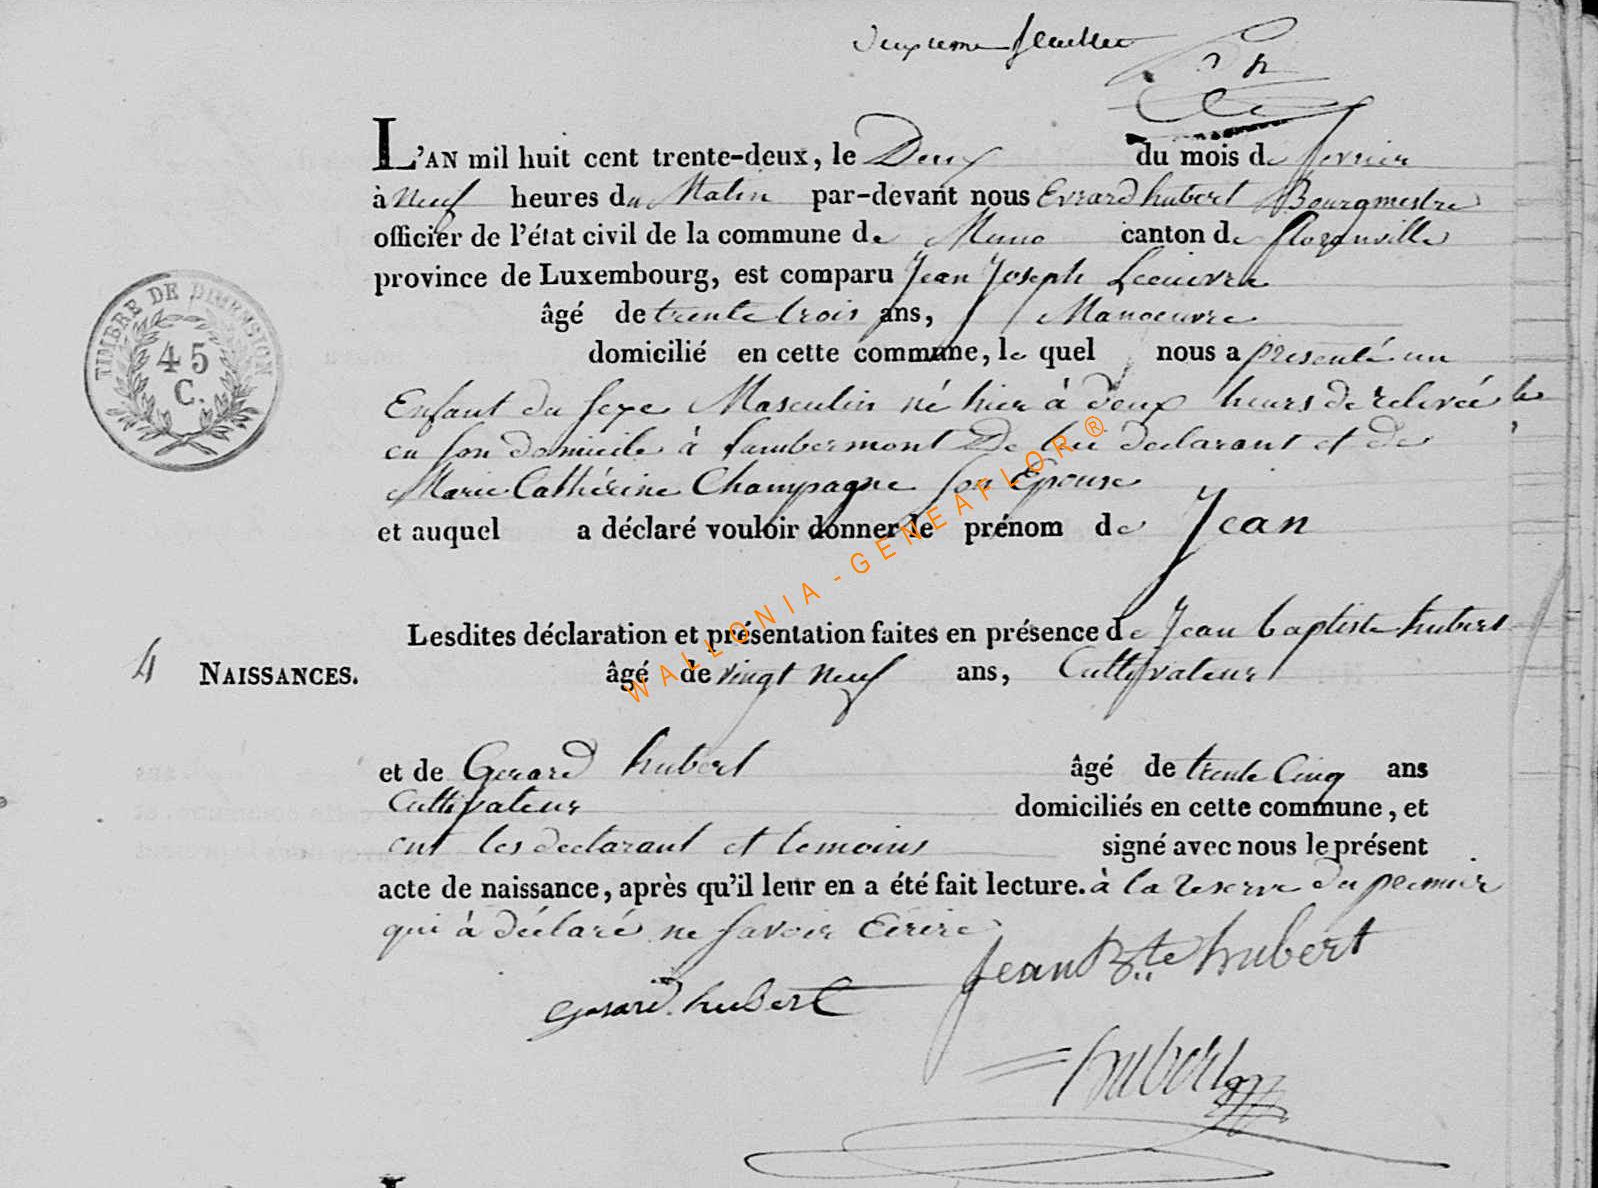 Deuxieme feuillet
L'AN mil huit cent trente-deux, le Deux du mois de fevrier
à neuf heures du Matin par-devant nous Evrard hubert Bourgmestre
officier de l'état civil de la commune de Muno canton de florenville
province de Luxembourg, est comparu Jean Joseph Lecuivre
âgé de trente trois ans, Manoeuvre
domicilié en cette commune, le quel nous a presenté un
Enfant du sexe Masculin né hier à deux heurs de relevée
en son domicile à Lambermont De lui declarant et de
Marie Cathérine Champagne son Epouse
et auquel a déclaré vouloir donner le prénom de Jean
Lesdites déclaration et présentation faites en présence de Jean baptiste hubert
4 NAISSANCES. âgé de vingt neuf ans, Cultivateur
et de Gerard hubert âgé de trente Cinq ans
Cultivateur domiciliés en cette commune, et
ont les declarant et temoins signé avec nous le présent
acte de naissance, après qu'il leur en a été fait lecture. à la reserve du premier
qui à déclaré ne savoir Ecrire
Jean Bte hubert
Gerard hubert
hubert
TIMBRE DE DIMENSION
45
C.
WALLONIA-GENEAFLOR®